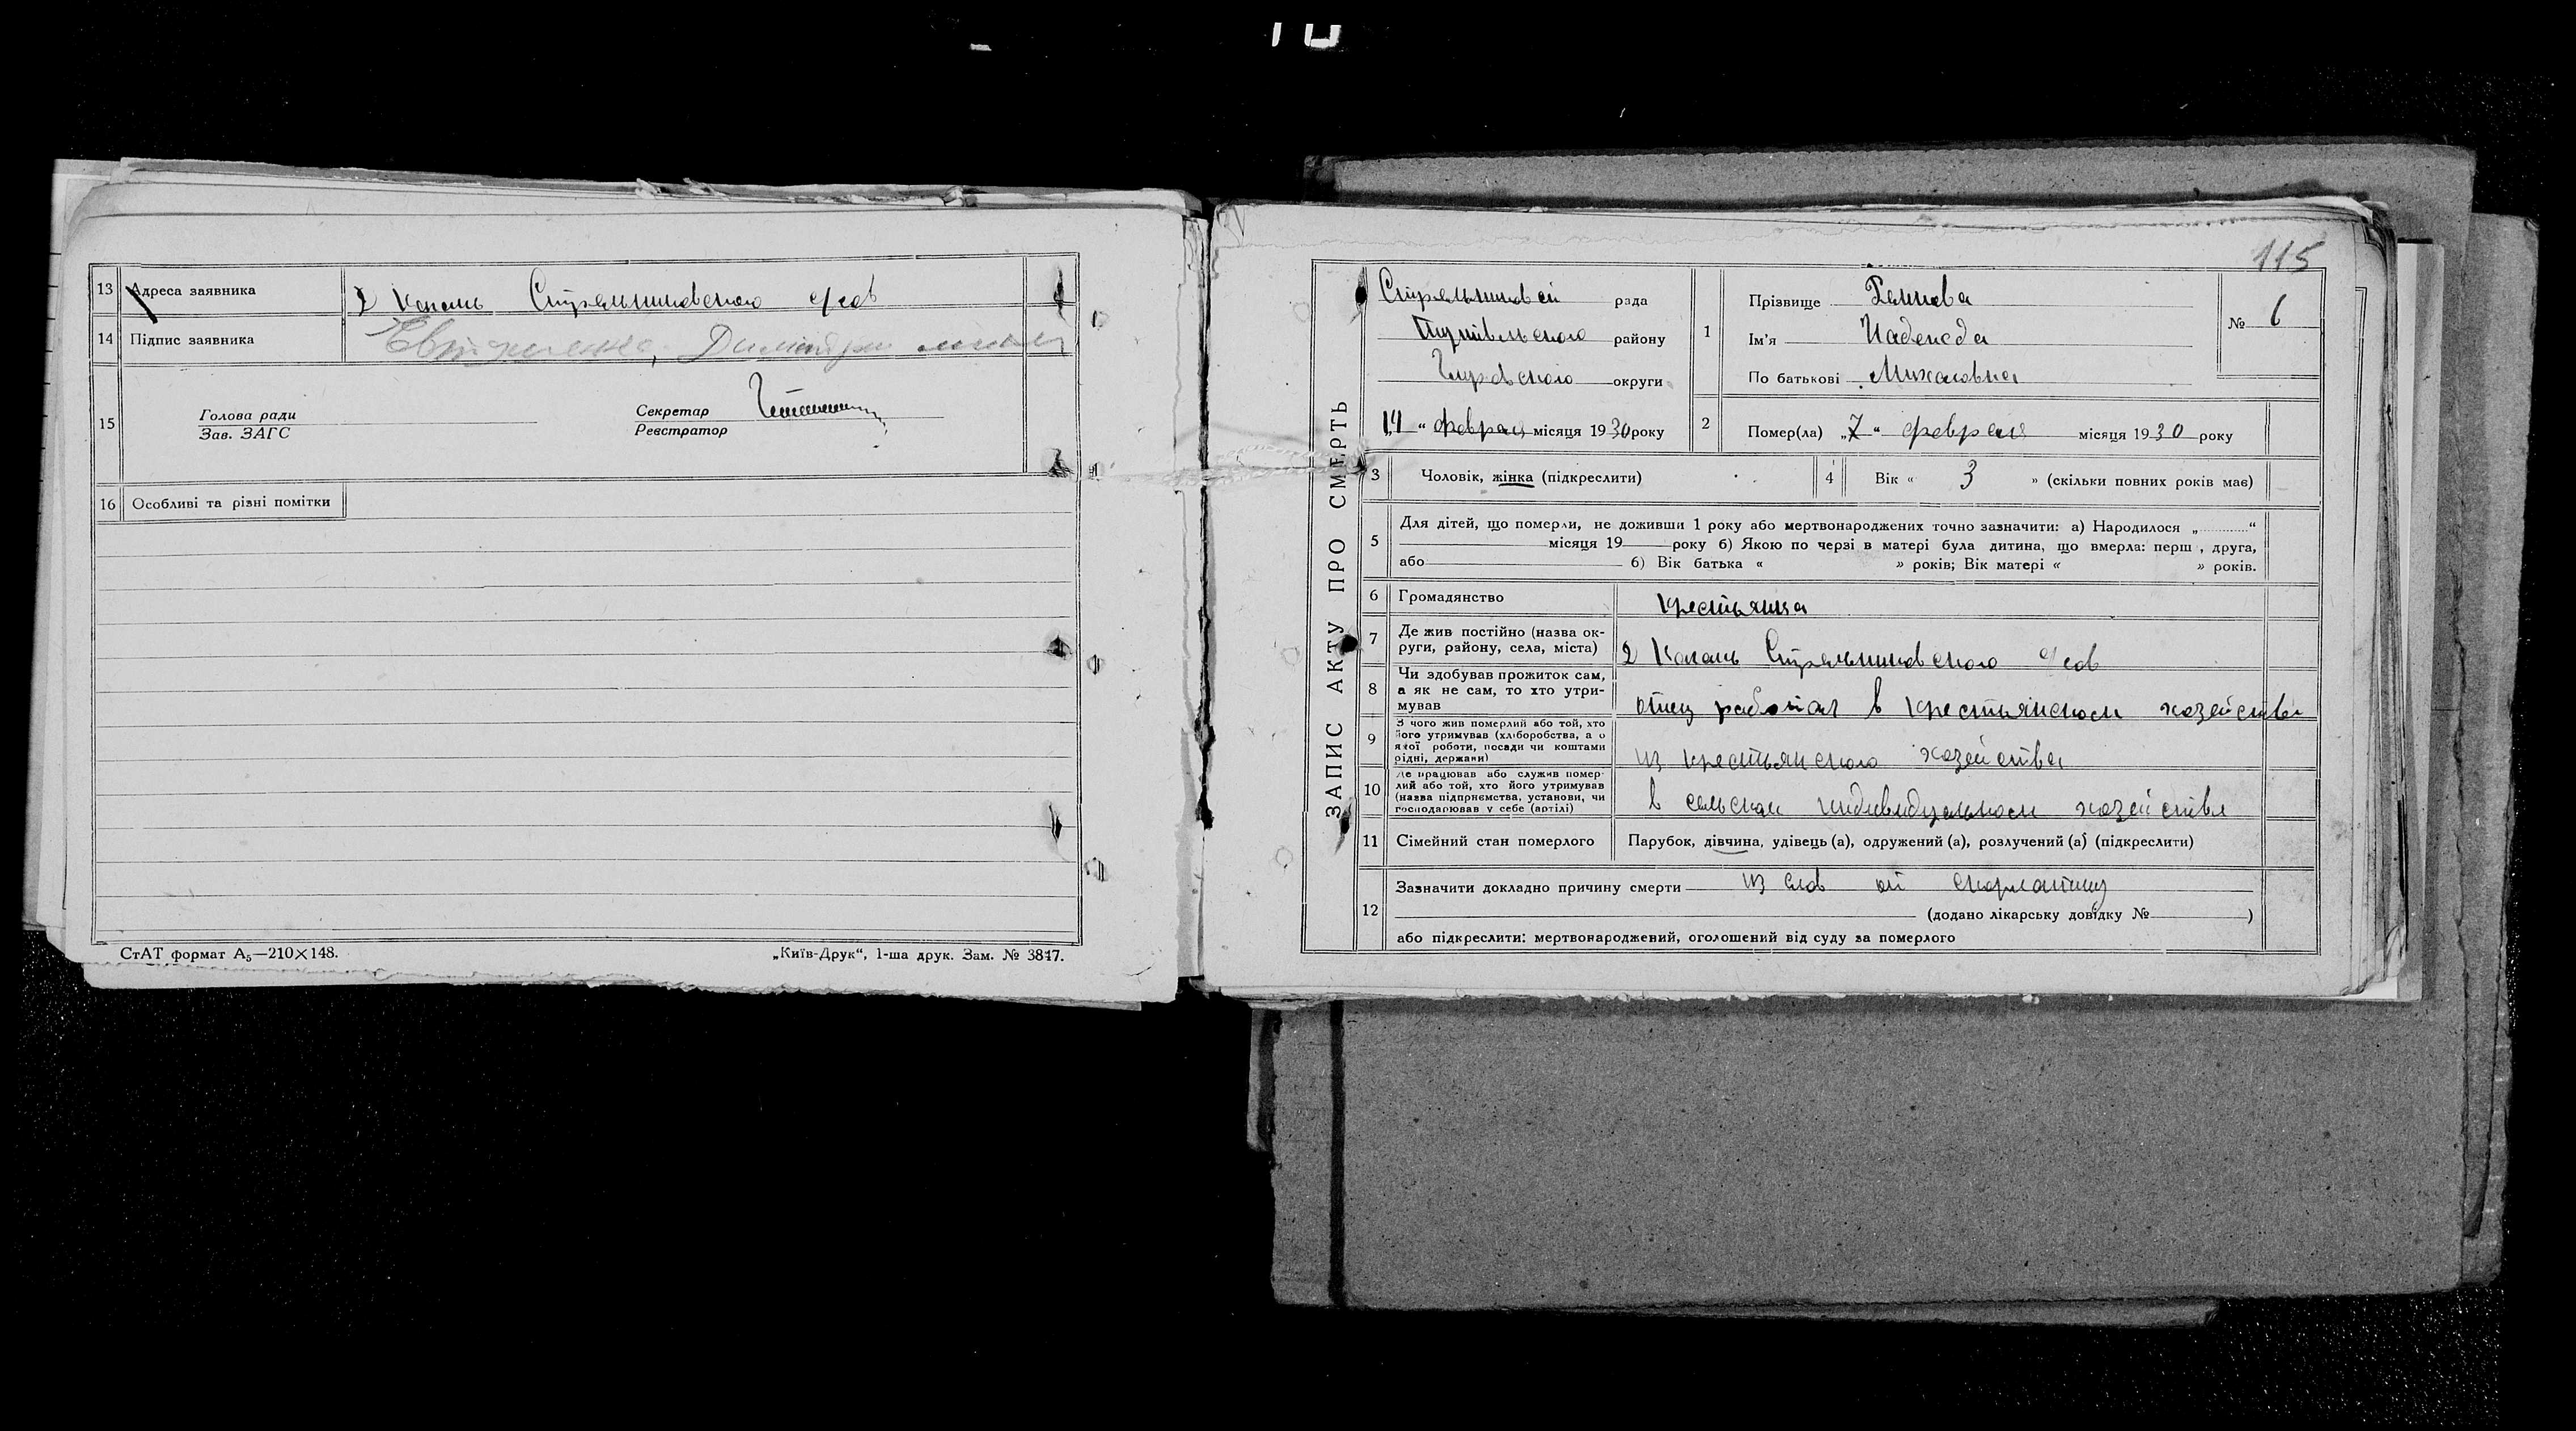 13 Адреса заявника Стрельниковского с/сов
14 Підпис заявника
15 Голова ради Секретар
Зав. ЗАГС Реєстратор
16 Особливі та різні помітки
СтАТ формат А5—210×148. „Київ-Друк“, 1-ша друк. Зам. № 3847.
115
ЗАПИС АКТУ ПРО СМЕРТЬ
рада
Путивльского району
округи
„14“ февраля місяця 1930 року
1 Прізвище
Ім'я Надежда
По батькові Михаловна
№ 6
2 Помер(ла) „7“ февраля місяця 1930 року
3 Чоловік, жінка (підкреслити)
4 Вік « 3 » (скільки повних років має)
5 Для дітей, що померли, не доживши 1 року або мертвонароджених точно зазначити: а) Народилося „ “
місяця 19 року б) Якою по черзі в матері була дитина, що вмерла: перш , друга,
або б) Вік батька « » років; Вік матері « » років.
6 Громадянство крестьянка
7 Де жив постійно (назва ок-
руги, району, села, міста) Стрельниковского с/сов
8 Чи здобував прожиток сам,
а як не сам, то хто утри-
мував отец работал в крестьянском хозействе
9 З чого жив померлий або той, хто
його утримував (хліборобства, а о
якої роботи, посади чи коштами
рідні, держави) из крестьянского хозейства
10 Де працював або служив помер-
лий або той, хто його утримував
(назва підприємства, установи, чи
господарював у себе (артілі) в сельском индивидуальном хозействе
11 Сімейний стан померлого Парубок, дівчина, удівець (а), одружений (а), розлучений (а) (підкреслити)
12 Зазначити докладно причину смерти из слов от скарлатину
(додано лікарську довідку № )
або підкреслити: мертвонароджений, оголошений від суду за померлого